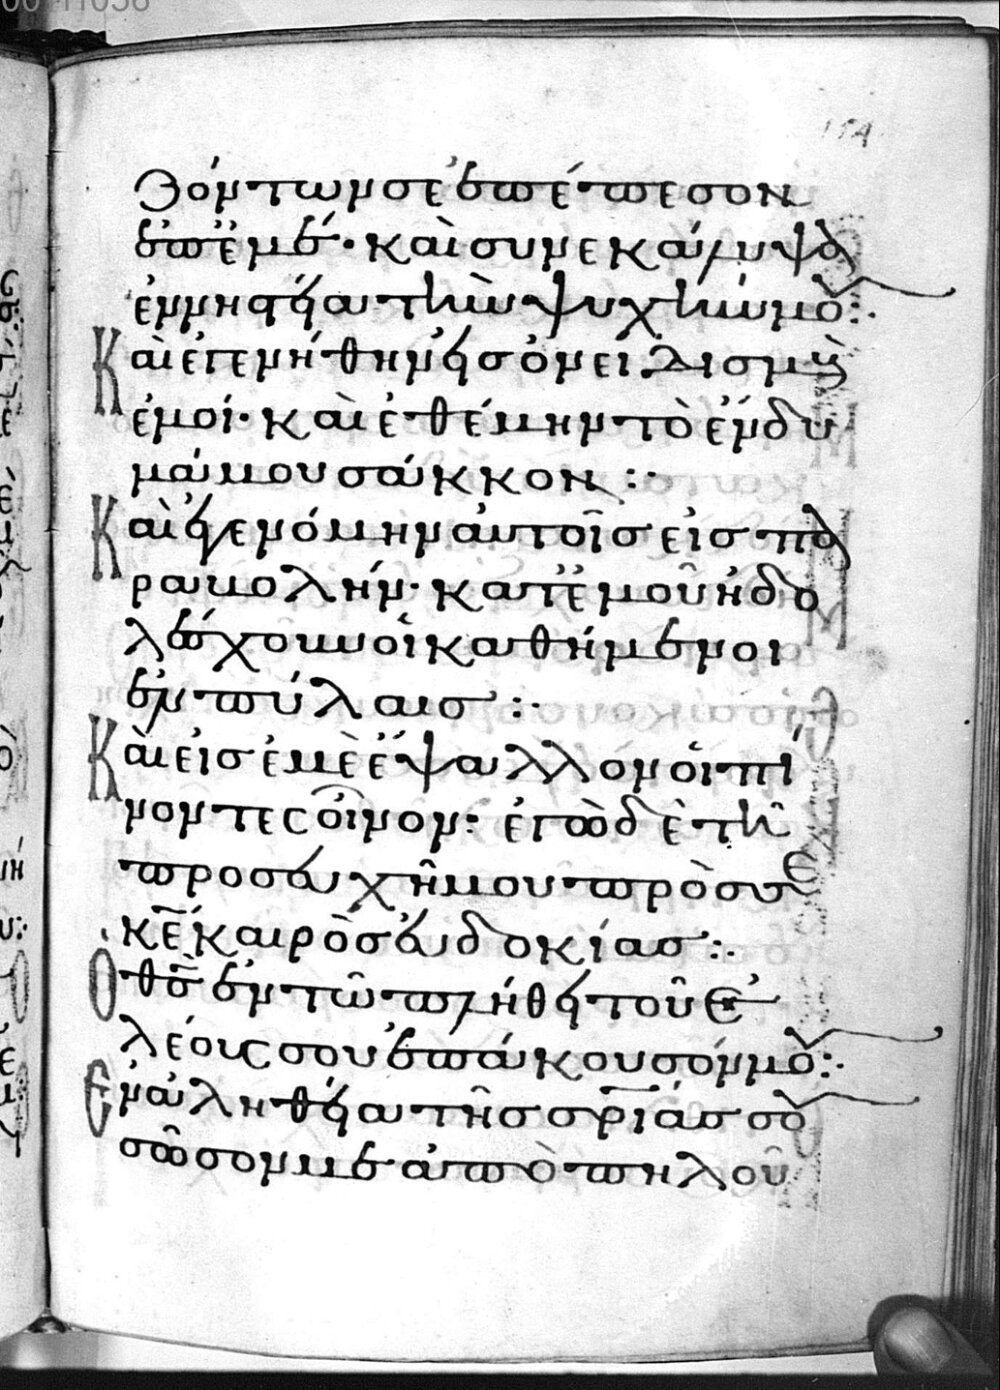 00 11038
154
ζόντων σε ἐπέπεσον
ἐπ' ἐμέ· καὶ συνεκάλυψα
ἐν νηστείᾳ τὴν ψυχήν μου:·
Καὶ ἐγενήθην εἰς ὀνειδισμὸν
ἐμοί· καὶ ἐθέμην τὸ ἔνδυ
μά μου σάκκον :·
Καὶ ἐγενόμην αὐτοῖς εἰς πα
ραβολήν· κατ' ἐμοῦ ἠδο
λέσχουν οἱ καθήμενοι
ἐν πύλαις :·
Καὶ εἰς ἐμὲ ἔψαλλον οἱ πί
νοντες οἶνον: ἐγὼ δὲ τῇ
προσευχῇ μου πρὸς σὲ
κε̄ καιρὸς εὐδοκίας :·
Ὁ θς̄ ἐν τῷ πλήθει τοῦ ἐ
λέους σου ἐπάκουσόν μου:·
Ἐν ἀληθείᾳ τῆς σρ̄ίας σου
σῶσόν με ἀπὸ πηλοῦ